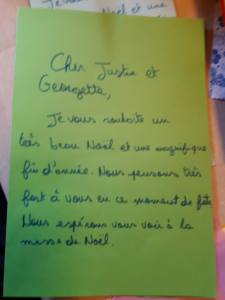 Noël et une
Cher Justin et
Georgette,
Je vous souhaite un
très beau Noël et une magnifique
fin d'année. Nous pensons très
fort à vous en ce moment de fête.
Nous espérons vous voir à la
messe de Noël.